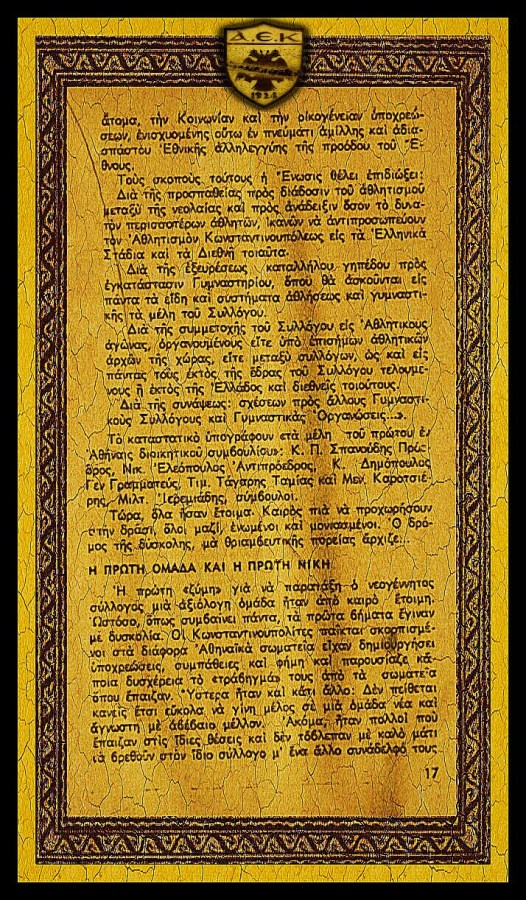 Α.Ε.Κ
1924
ἄτομα, τὴν Κοινωνίαν καὶ τὴν οἰκογένειαν ὑποχρεώ-
σεων, ἐνισχυομένης οὕτω ἐν πνεύματι ἁμίλλης καὶ ἀδια-
σπάστου Ἐθνικῆς ἀλληλεγγύης τῆς προόδου τοῦ Ἔ-
θνους.
Τοὺς σκοποὺς τούτους ἡ Ἕνωσις θέλει ἐπιδιώξει:
Διὰ τῆς προσπαθείας πρὸς διάδοσιν τοῦ ἀθλητισμοῦ
μεταξὺ τῆς νεολαίας καὶ πρὸς ἀνάδειξιν ὅσον τὸ δυνα-
τὸν περισσοτέρων ἀθλητῶν, ἱκανῶν νὰ ἀντιπροσωπεύουν
τὸν Ἀθλητισμὸν Κωνσταντινουπόλεως εἰς τὰ Ἑλληνικὰ
Στάδια καὶ τὰ Διεθνῆ τοιαῦτα.
Διὰ τῆς ἐξευρέσεως καταλλήλου γηπέδου πρὸς
ἐγκατάστασιν Γυμναστηρίου, ὅπου θὰ ἀσκοῦνται εἰς
πάντα τὰ εἴδη καὶ συστήματα ἀθλήσεως καὶ γυμναστι-
κῆς τὰ μέλη τοῦ Συλλόγου.
Διὰ τῆς συμμετοχῆς τοῦ Συλλόγου εἰς Ἀθλητικοὺς
ἀγῶνας, ὀργανουμένους εἴτε ὑπὸ ἐπισήμων ἀθλητικῶν
ἀρχῶν τῆς χώρας, εἴτε μεταξὺ συλλόγων, ὡς καὶ εἰς
πάντας τοὺς ἐκτὸς τῆς ἕδρας τοῦ Συλλόγου τελουμέ-
νους ἢ ἐκτὸς τῆς Ἑλλάδος καὶ διεθνεῖς τοιούτους.
Διὰ τῆς συνάψεως: σχέσεων πρὸς ἄλλους Γυμναστι-
κοὺς Συλλόγους καὶ Γυμναστικὰς Ὀργανώσεις...».
Τὸ καταστατικὸ ὑπογράφουν «τὰ μέλη τοῦ πρώτου ἐν
Ἀθήναις διοικητικοῦ συμβουλίου»: Κ. Π. Σπανούδης Πρό-
εδρος, Νικ. Ἐλεόπουλος Ἀντιπρόεδρος, Κ. Δημόπουλος
Γεν Γραμματεύς, Τιμ. Τάγαρης Ταμίας καὶ Μεν. Καροτσιέ-
ρης, Μιλτ. Ἱερεμιάδης, σύμβουλοι.
Τώρα, ὅλα ἦσαν ἕτοιμα. Καιρὸς πιὰ νὰ προχωρήσουν
στὴν δράση, ὅλοι μαζί, ἑνωμένοι καὶ μονιασμένοι. Ὁ δρό-
μος τῆς δύσκολης, μὰ θριαμβευτικῆς πορείας ἄρχιζε...
Η ΠΡΩΤΗ ΟΜΑΔΑ ΚΑΙ Η ΠΡΩΤΗ ΝΙΚΗ
Ἡ πρώτη «ζύμη» γιὰ νὰ παρατάξη ὁ νεογέννητος
σύλλογος μιὰ ἀξιόλογη ὁμάδα ἦταν ἀπὸ καιρὸ ἕτοιμη.
Ὡστόσο, ὅπως συμβαίνει πάντα, τὰ πρῶτα βήματα ἔγιναν
μὲ δυσκολία. Οἱ Κωνσταντινουπολίτες παῖκται σκορπισμέ-
νοι στὰ διάφορα Ἀθηναϊκὰ σωματεῖα εἶχαν δημιουργήσει
ὑποχρεώσεις, συμπάθειες καὶ φήμη καὶ παρουσίαζε κά-
ποια δυσχέρεια τὸ «τράβηγμά» τους ἀπὸ τὰ σωματεῖα
ὅπου ἔπαιζαν. Ὕστερα ἦταν καὶ κάτι ἄλλο: Δὲν πείθεται
κανεὶς ἔτσι εὔκολα νὰ γίνη μέλος σὲ μιὰ ὁμάδα νέα καὶ
ἄγνωστη μὲ ἀβέβαιο μέλλον. Ἀκόμα, ἦταν πολλοὶ ποὺ
ἔπαιζαν στὶς ἴδιες θέσεις καὶ δὲν τὄβλεπαν μὲ καλὸ μάτι
νὰ βρεθοῦν στὸν ἴδιο σύλλογο μ' ἕνα ἄλλο συνάδελφό τους
17